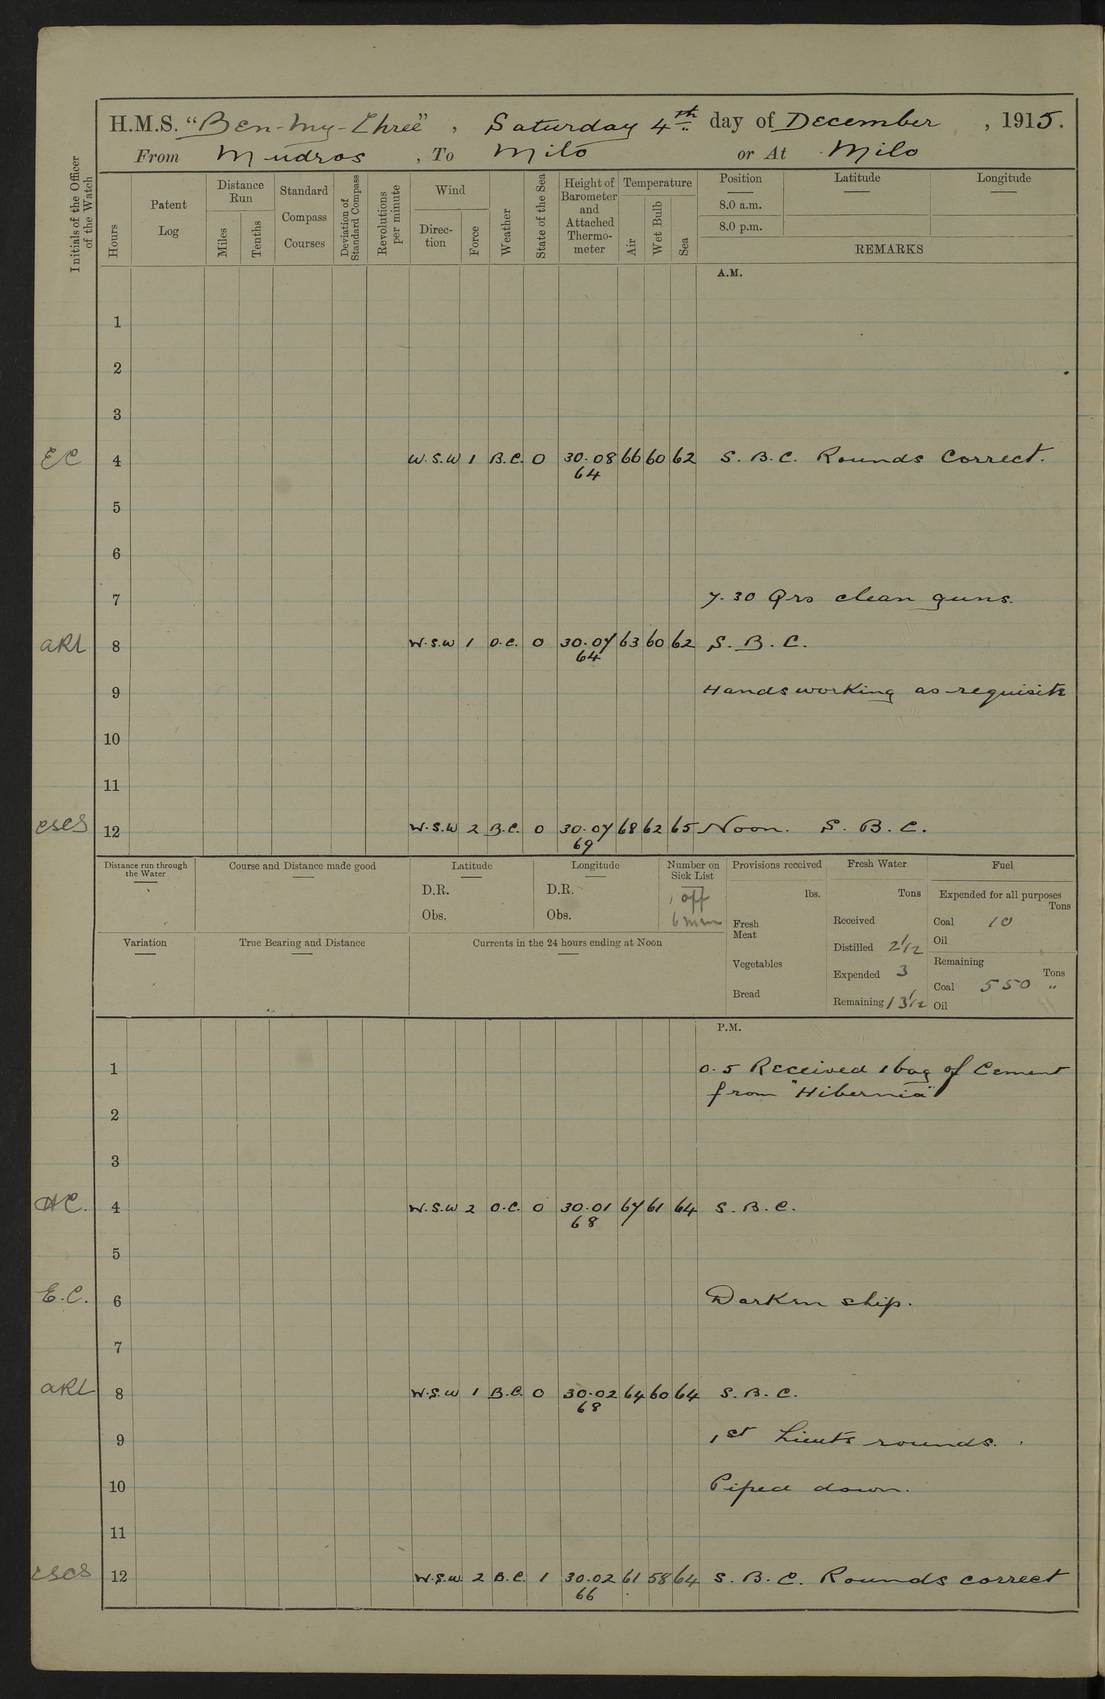 H.M.S. "Ben-my-Chree", Saturday 4th day of December, 1915.
From Mudros, To Milo or At Milo
Initials of the Officer of the Watch
Hours
Patent Log
Distance Run
Miles
Tenths
Standard Compass Courses
Deviation of Standard Compass
Revolutions per minute
Wind
Direction
Force
Weather
State of the Sea
Height of Barometer and Attached Thermometer
Temperature
Air
Wet Bulb
Sea
Position
8.0 a.m.
8.0 p.m.
Latitude
Longitude
REMARKS
A.M.
1
2
3
EC 4 W.S.W 1 B.C. 0 30.08 66 60 62 S.B.C. Rounds Correct.
64
5
6
7 7.30 Qrs clean guns.
ARL 8 W.S.W 1 O.C. 0 30.07 63 60 62 S.B.C.
64
9 Hands working as requisite
10
11
12 W.S.W 2 B.C. 0 30.07 68 62 65 Noon. S.B.C.
69
Distance run through the Water
Course and Distance made good
Latitude
D.R.
Obs.
Longitude
D.R.
Obs.
Number on Sick List
1 off
6 men
Provisions received
lbs.
Fresh Meat
Vegetables
Bread
Fresh Water
Tons
Received
Distilled 2 1/2
Expended 3
Remaining 13 1/2
Fuel
Expended for all purposes
Tons
Coal 10
Oil
Remaining
Tons
Coal 550 "
Oil
Variation
True Bearing and Distance
Currents in the 24 hours ending at Noon
P.M.
1 0.5 Received 1 bag of Cement
from "Hibernia"
2
3
4 W.S.W 2 O.C. 0 30.01 67 61 64 S.B.C.
68
5
E.C. 6 Darken ship.
7
ARL 8 W.S.W 1 B.C. 0 30.02 64 60 64 S.B.C.
68
9 1st Lieuts rounds.
10 Piped down.
11
12 W.S.W. 2 B.C. 1 30.02 61 58 64 S.B.C. Rounds correct
66